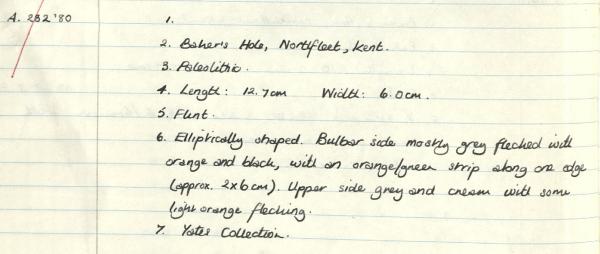 A. 252'80
1.
2. Baker's Hole, Northfleet, Kent.
3. Paleolithic.
4. Length: 12.7cm Width: 6.0cm.
5. Flint.
6. Elliptically shaped. Bulbar side mostly grey flecked with
orange and black, with an orange/green strip along one edge
(approx. 2x6cm). Upper side grey and cream with some
light orange flecking.
7. Yates Collection.